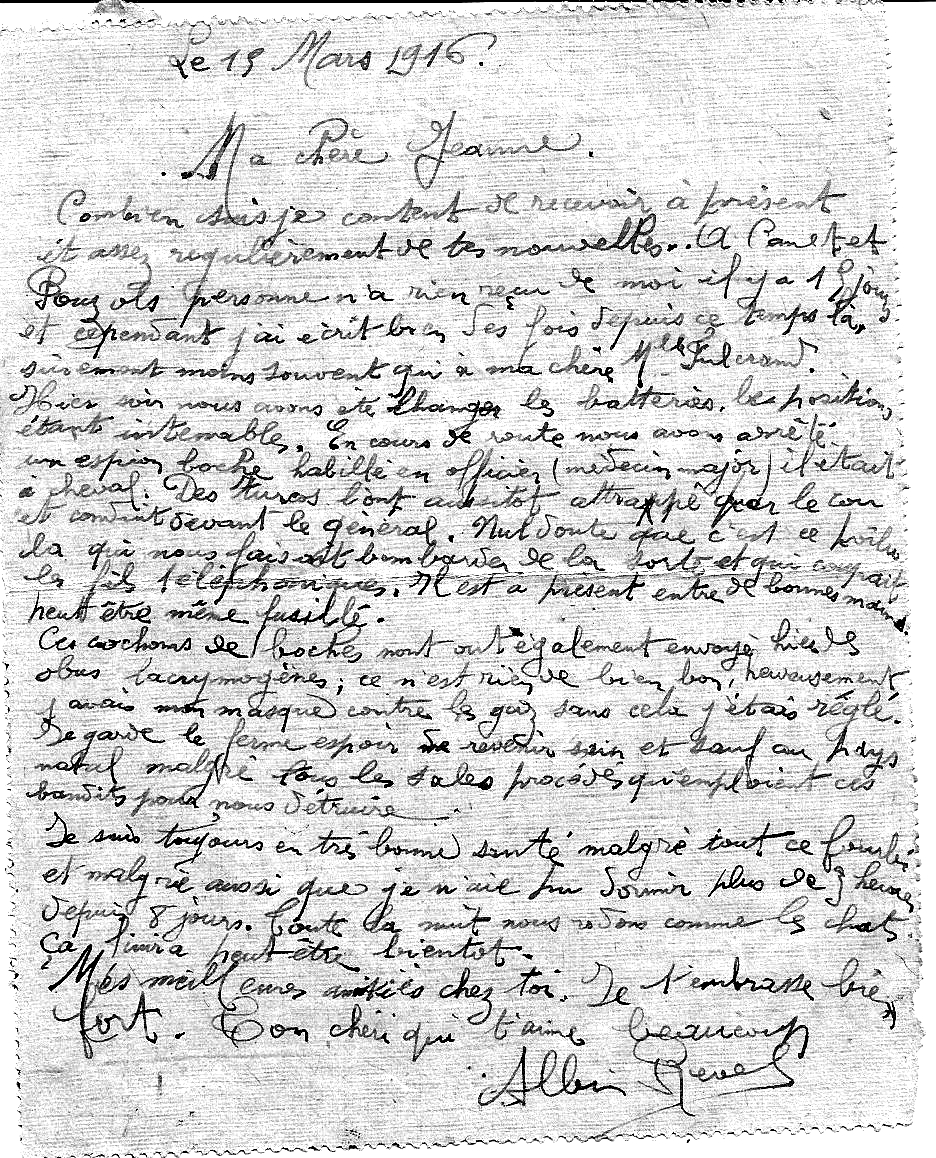 Le 15 Mars 1916.
Ma chère Jeanne.
Combien suis je content de recevoir à présent
et assez regulièrement de tes nouvelles.. A Canet et
Pouzols personne n'a rien reçu de moi il y a 15 jours
et cependant j'ai ecrit bien des fois depuis ce temps la,
surement moins souvent qu'à ma chère Melle Fulcrand.
Hier soir nous avons été changer les batteries. les positions
étant intenables. En cours de route nous avons arrêté
un espion boche habillé en officier (médecin major) il était
à cheval. Des turcos l'ont aussitot attrappé par le cou
et conduit devant le général. Nul doute que c'est ce poilu
la qui nous faisait bombarder de la sorte et qui coupait
les fils téléphoniques. Il est a present entre de bonnes mains.
peut être même fusillé.
Ces cochons de boches nont ont également envoyé hier des
obus lacrymogènes; ce n'est rien de bien bon, heureusement,
j'avais mon masque contre les gaz sans cela j'étais réglé.
Je garde le ferme espoir de revenir sain et sauf au pays
natal malgré tous les sales procédés qu'emploient ces
bandits pour nous détruire.
Je suis toujours en très bonne santé malgré tout ce fourbi
et malgré aussi que je n'aie pu dormir plus de 3 heures
depuis 8 jours. Toute la nuit nous rodons comme les chats.
Ça finira peut être bientot.
Mes meilleures amitiés chez toi. Je t'embrasse bien
fort. Ton chéri qui t'aime beaucoup
Albin Revel